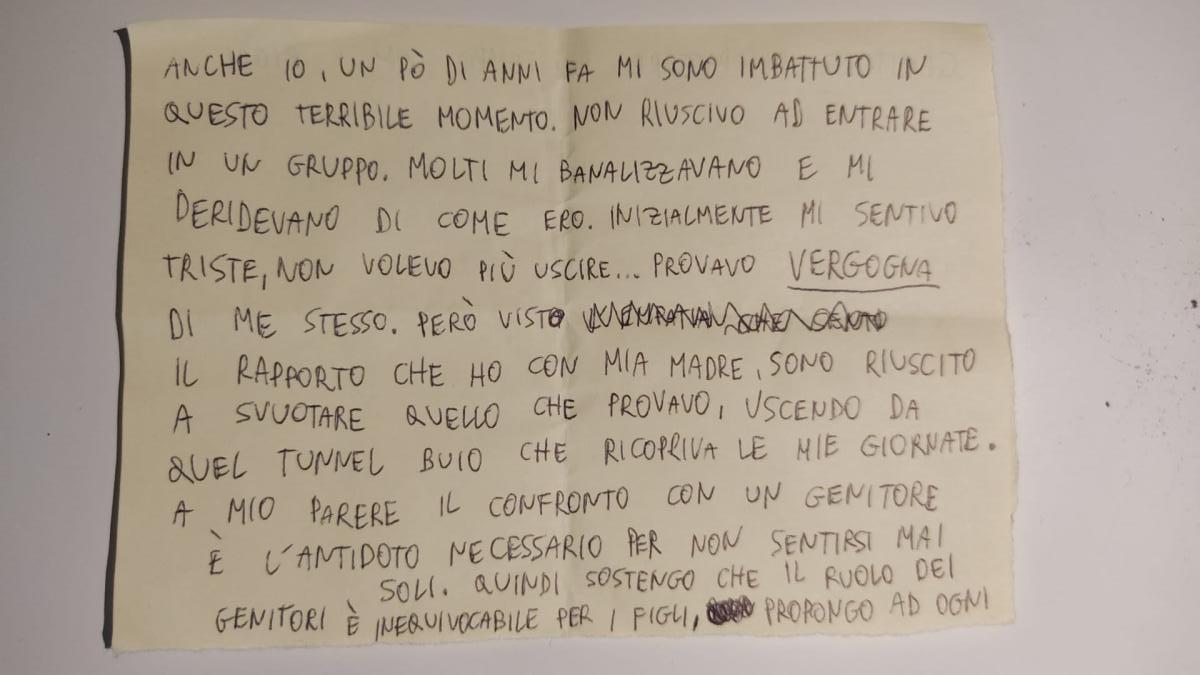 ANCHE IO, UN PÒ DI ANNI FA MI SONO IMBATTUTO IN
QUESTO TERRIBILE MOMENTO. NON RIUSCIVO AD ENTRARE
IN UN GRUPPO. MOLTI MI BANALIZZAVANO E MI
DERIDEVANO DI COME ERO. INIZIALMENTE MI SENTIVO
TRISTE, NON VOLEVO PIÙ USCIRE... PROVAVO VERGOGNA
DI ME STESSO. PERÒ VISTO
IL RAPPORTO CHE HO CON MIA MADRE, SONO RIUSCITO
A SVUOTARE QUELLO CHE PROVAVO, USCENDO DA
QUEL TUNNEL BUIO CHE RICOPRIVA LE MIE GIORNATE.
A MIO PARERE IL CONFRONTO CON UN GENITORE
È L'ANTIDOTO NECESSARIO PER NON SENTIRSI MAI
SOLI. QUINDI SOSTENGO CHE IL RUOLO DEI
GENITORI È INEQUIVOCABILE PER I FIGLI, PROPONGO AD OGNI